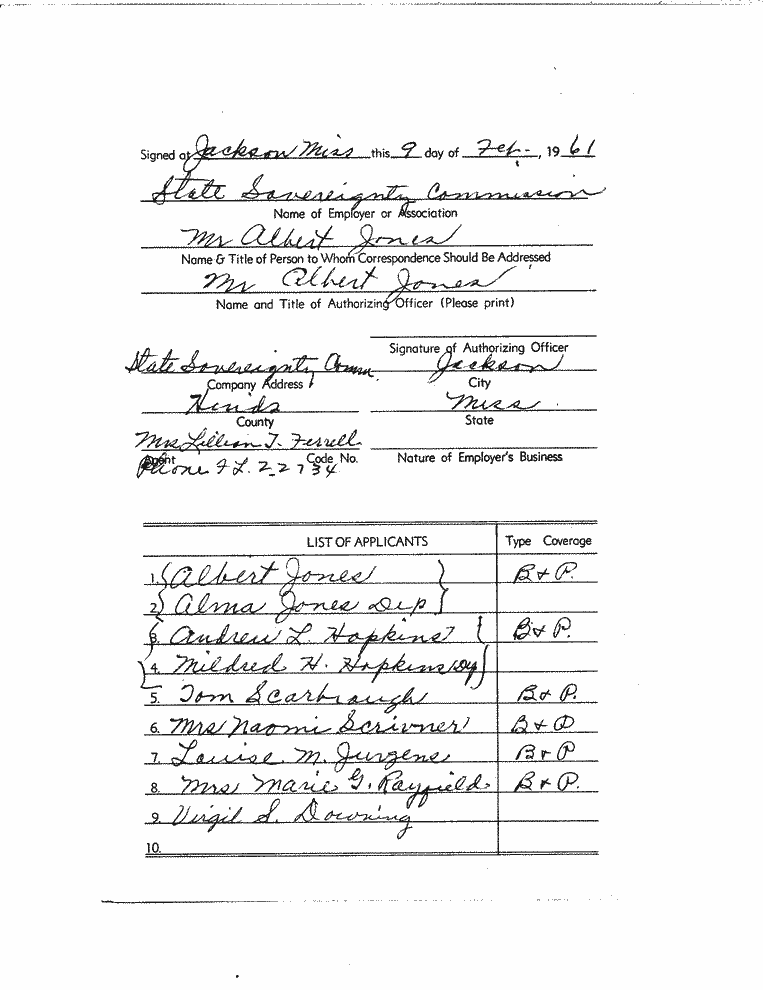 Signed at Jackson Miss this 9 day of Feb., 19 61
State Sovereignty Commission
Name of Employer or Association
Mr Albert Jones
Name & Title of Person to Whom Correspondence Should Be Addressed
Mr Albert Jones
Name and Title of Authorizing Officer (Please print)
Signature of Authorizing Officer
State Sovereignty Comm. Jackson
Company Address City
Hinds Miss.
County State
Mrs Lillian T. Ferrell
Agent Code No. Nature of Employer's Business
Phone FL. 2-2734
LIST OF APPLICANTS Type Coverage
1. Albert Jones B & P.
2. Alma Jones Dep
3. Andrew L. Hopkins B & P.
4. Mildred H. Hopkins
5. Tom Scarbrough B & P.
6. Mrs Naomi Scrivner B & P
7. Louise M. Jurgens B & P
8. Mrs Marie G. Rayfield B & P.
9. Virgil S. Downing
10.